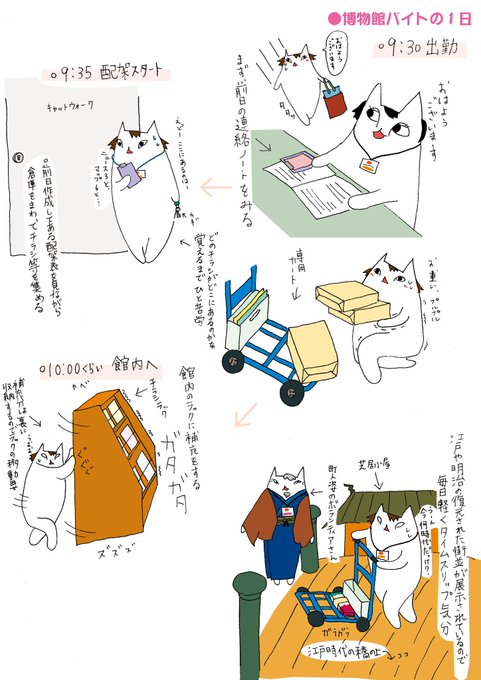 ●博物館バイトの1日
○9:30 出勤
おはよう
ございます
タタッ
おはよう
ございま〜す
まず前日の連絡ノートをみる
○9:35 配架スタート
キャットウォーク
えと…ここにあるのは…
ニュース3と、
マップ6と…
カギ
○前日作成してある配架表を見ながら
倉庫をまわってチラシ等を集める
どのチラシがどこにあるのかを
覚えるまでひと苦労
専用
カート
お、重い、プルプル
○10:00くらい 館内へ
カベ
チラシラック
館内のラックに補充をする
ガタガタ
補充分は裏に
収納するのでラックの移動要
うおお
ぐぐぐ
ズズズ
江戸や明治の復元された街並が展示されているので
毎日軽くタイムスリップ気分
芝居小屋
町人姿のボランティアさん
うーん
今何時代だっけ?
ガラガラ
江戸時代の橋の上
ココ